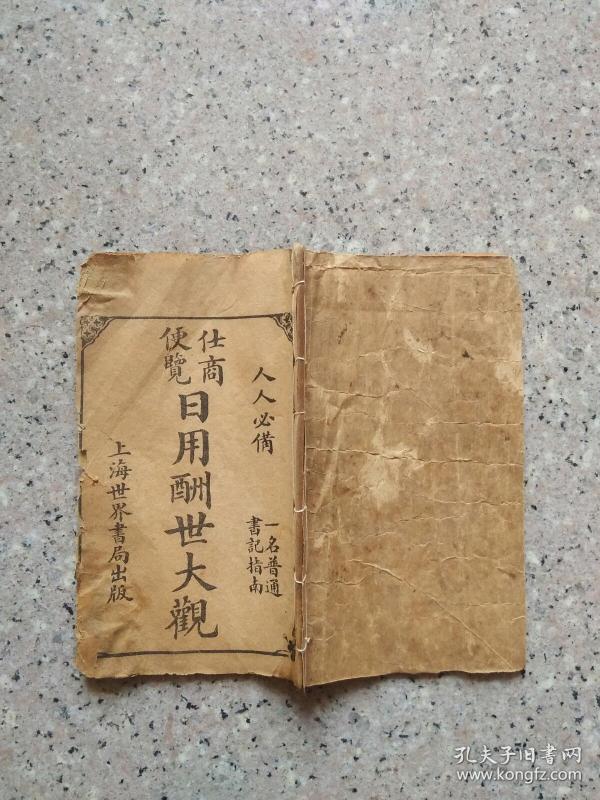 人人必備
一名普通
書記指南
仕商
便覽
日用酬世大觀
上海世界書局出版
孔夫子旧书网
www.kongfz.com